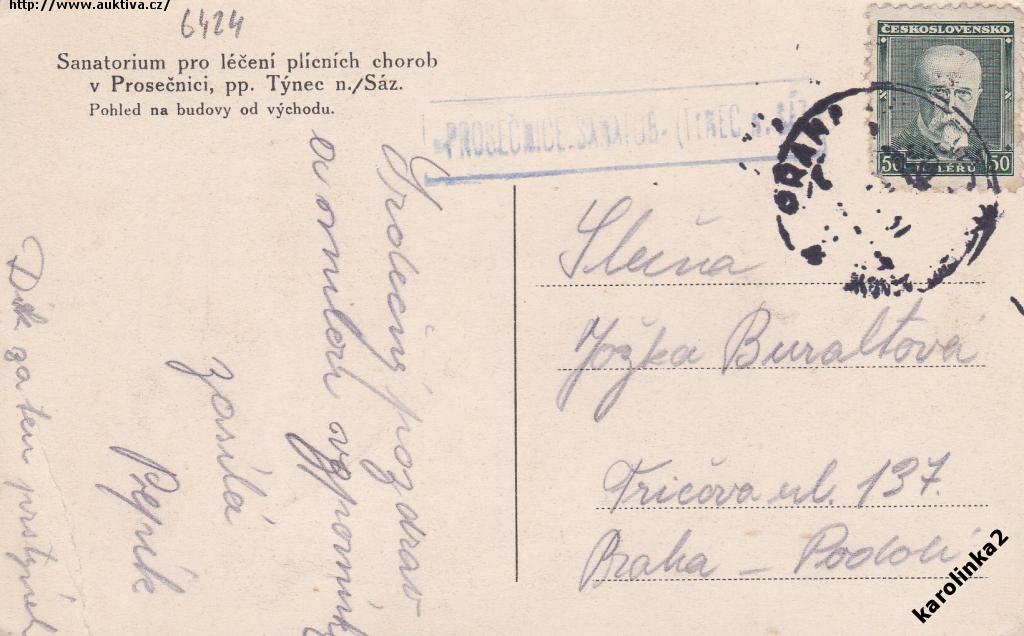 http://www.auktiva.cz/
6424
Sanatorium pro léčení plícních chorob
v Prosečnici, pp. Týnec n./Sáz.
Pohled na budovy od východu.
PROSEČNICE-SANATOR- (TÝNEC n. SÁZ
ČESKOSLOVENSKO
50 HALÉRŮ 50
Srdečný pozdrav
a vzpomínk
zasílá
Pepík
Dík za ten prstýnek
Slečna
Jožka Buraltová
Tričova ul. 137.
Praha - Podolí
karolinka2